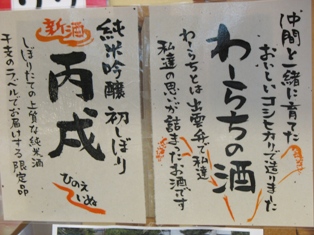 仲間と一緒に育てた
おいしいコシヒカリで造りました
わーらちの酒
わーらちとは出雲弁で私達
私達の思いが詰まったお酒です
新酒
純米吟醸 初しぼり
丙戌
ひのえ
いぬ
しぼりたての上質な純米酒
干支のラベルでお届けする限定品